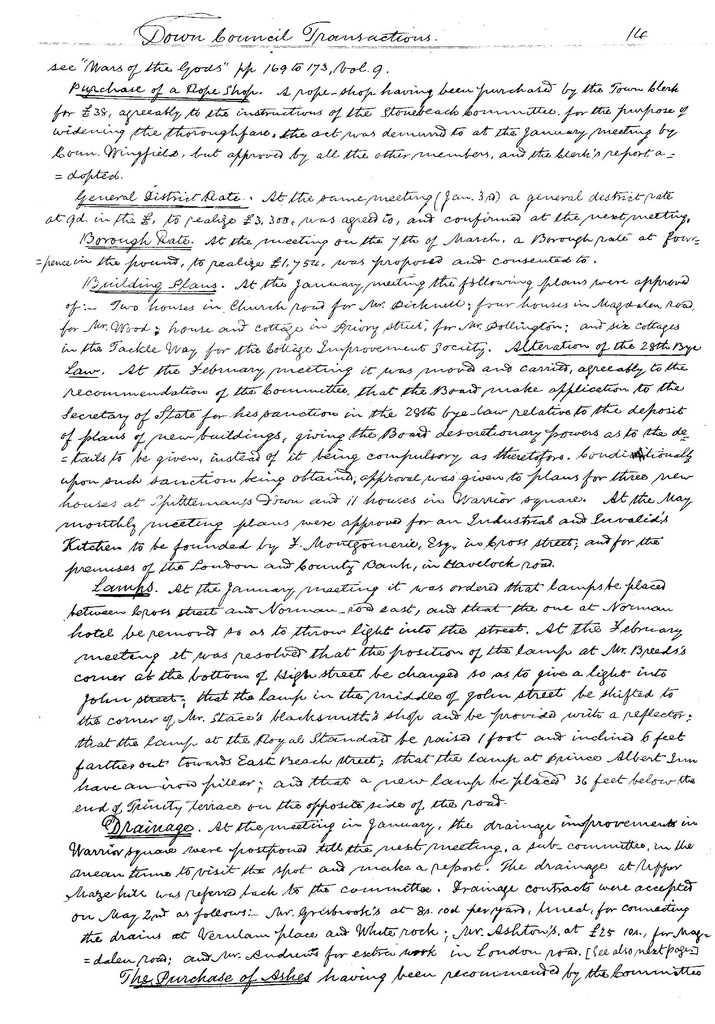 Town Council Transactions. 14
see "Wars of the Gods" pp 169 to 173, vol. 9.
Purchase of a Rope Shop. A rope-shop having been purchased by the Town Clerk
for £38, agreeably to the instructions of the Stonebeach Committee, for the purpose of
widening the thoroughfare, the act was demured to at the January meeting by
Coun. Wingfield, but approved by all the other members, and the Clerk's report a=
=dopted.
General District Rate. At the same meeting (Jan. 3rd) a general district rate
at 9d. in the £, to realize £3,300, was agreed to, and confirmed at the next meeting.
Borough Rate. At the meeting on the 7th of March, a Borough rate at four=
=pence in the pound, to realize £1,750, was proposed and consented to.
Building Plans. At the January meeting the following plans were approved
of:- Two houses in Church road for Mr. Bicknell; four houses in Magdalen road
for Mr. Wood; house and cottage in Priory street, for Mr. Dollington; and six cottages
in the Tackle Way for the Cottage Improvement Society. Alteration of the 28th Bye
Law. At the February meeting it was moved and carried, agreeably to the
recommendation of the Committee, that the Board make application to the
Secretary of State for his sanction in the 28th bye-law relative to the deposit
of plans of new buildings, giving the Board descretionary powers as to the de=
=tails to be given, instead of it being compulsory as theretofore. Conditionally
upon such sanction being obtained, approval was given to plans for three new
houses at Spittlemans Down and 11 houses in Warrior square. At the May
monthly meeting plans were approved for an Industrial and Invalid's
Kitchen to be founded by F. Montgomerie, Esq., in Cross street; and for the
premises of the London and County Bank, in Havelock road.
Lamps. At the January meeting it was ordered that lamps be placed
between Cross street and Norman-rod east, and that the one at Norman
hotel be removed so as to throw light into the street. At the February
meeting it was resolved that the position of the lamp at Mr. Breeds's
corner at the bottom of High street be changed so as to give a light into
John street; that the lamp in the middle of John street be shifted to
the corner of Mr. Stace's blacksmith's shop and be provided with a reflector;
that the lamp at the Royal Standard be raised 1 foot and inclined 6 feet
farther out towards East Beach street; that the lamp at Prince Albert Inn
have an iron pillar; and that a new lamp be placed 36 feet below the
end of Trinity terrace on the opposite side of the road.
Drainage. At the meeting in January, the drainage improvements in
Warrior square were postponed till the next meeting, a sub-committee, in the
mean time to visit the spot and make a report. The drainage at Upper
Maze hill was referred back to the committee. Drainage contracts were accepted
on May 2nd as follows:- Mr. Grisbrook's at 8s. 10d per yard, lineal, for connecting
the drains at Verulam place and White rock; Mr. Ashton's, at £25 10s., for Mag=
=dalen road; and Mr. Andrews for extra work in London road. [See also next page]
The Purchase of Ashes having been recommended by the Committee